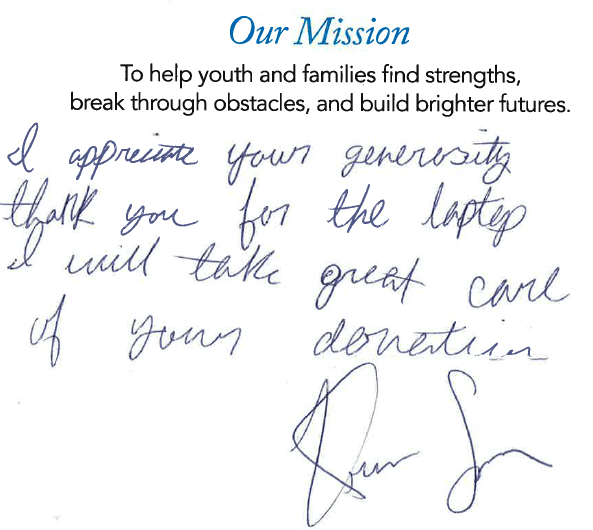 Our Mission
To help youth and families find strengths,
break through obstacles, and build brighter futures.
I appreciate your generosity
thank you for the laptop
I will take great care
of your donation